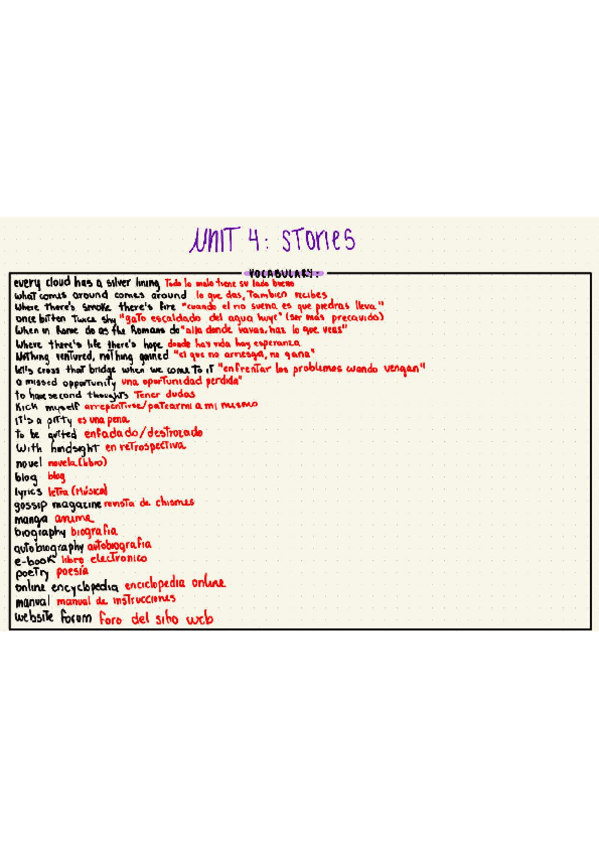 UNIT 4: STORIES
VOCABULARY:
every cloud has a silver lining Todo lo malo tiene su lado bueno
what comes around comes around lo que das, Tambien recibes
Where there's smoke there's fire "cuando el rio suena es que piedras lleva"
once bitten Twice shy "gato escaldado del agua huye" (ser más precavido)
When in Rome do as the Romans do "alla donde vayas, haz lo que veas"
Where there's life there's hope donde hay vida hay esperanza
Nothing ventured, nothing gained "el que no arriesga, no gana"
let's cross that bridge when we come to it "enfrentar los problemas cuando vengan"
a missed opportunity una oportunidad perdida"
to have second thoughts Tener dudas
Kick myself arrepentirse/patearmi a mi mismo
it's a pitty es una pena
to be gutted enfadado/destrozado
With hindsight en retrospectiva
novel novela (libro)
blog blog
lyrics letra (Música)
gossip magazine revista de chismes
manga anime
biography biografia
autobiography autobiografia
e-book libro electronico
poetry poesía
online encyclopedia enciclopedia online
manual manual de instrucciones
website forum foro del sitio web